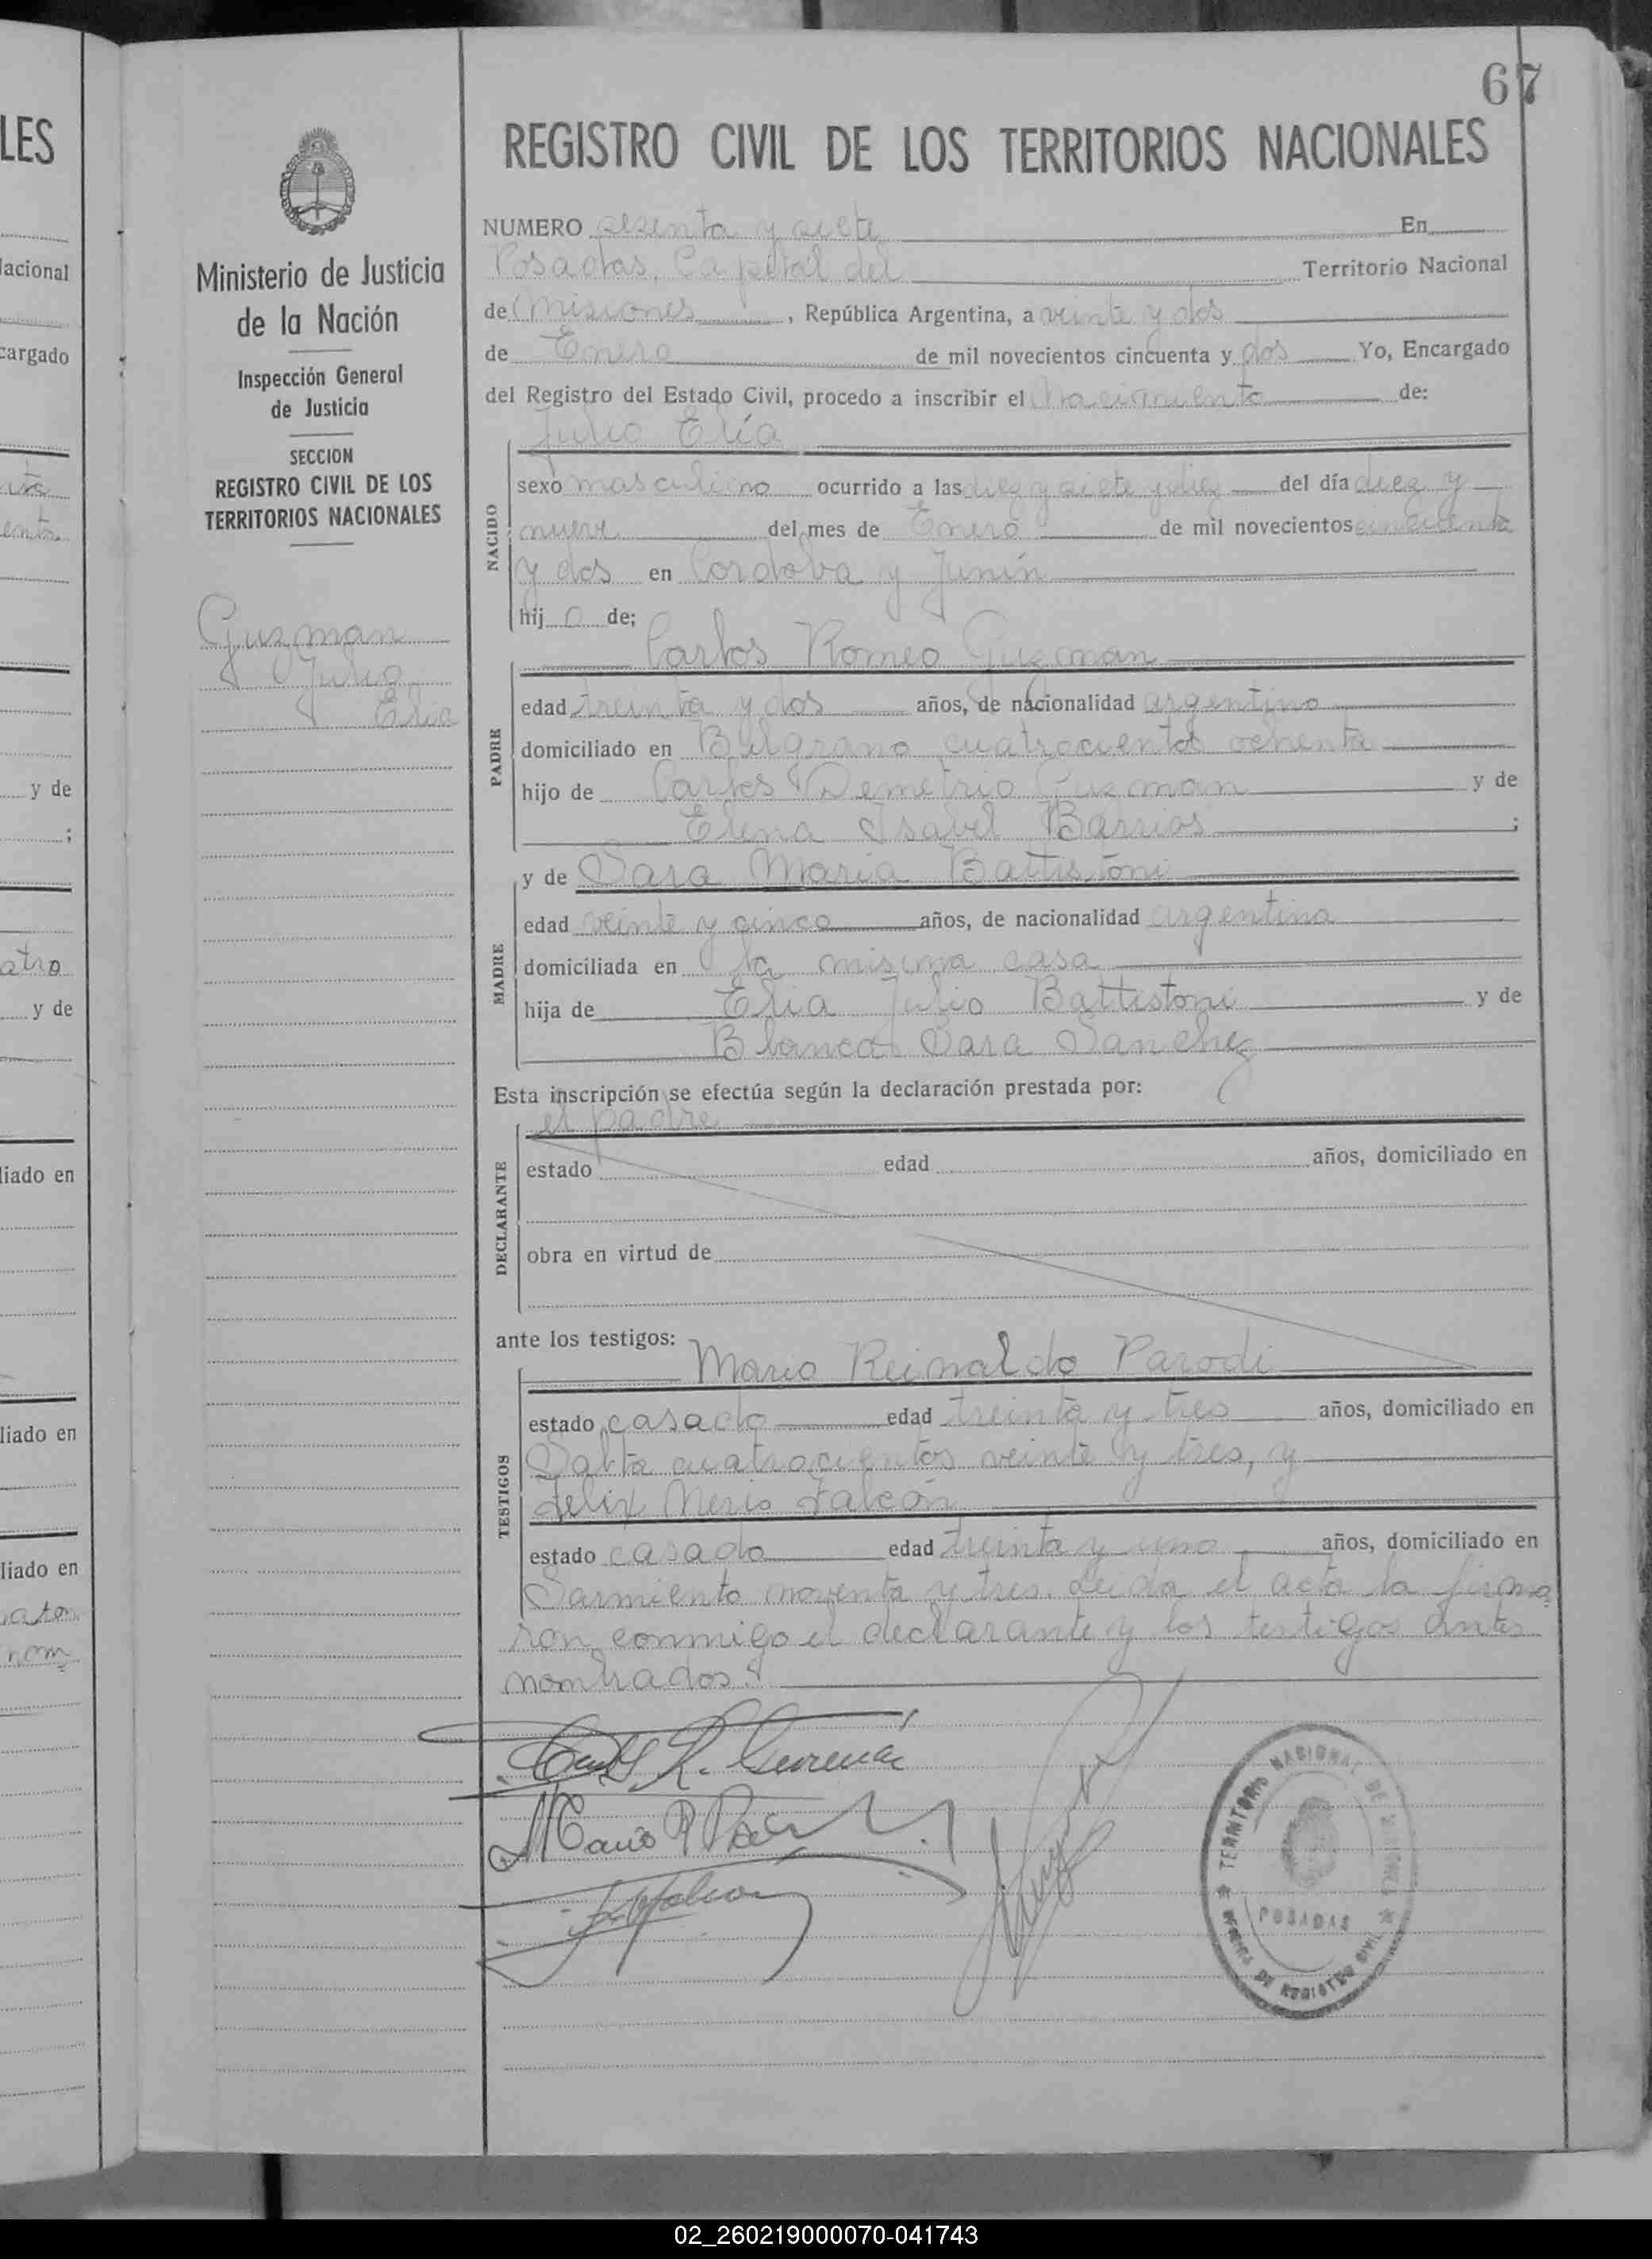 67
REGISTRO CIVIL DE LOS TERRITORIOS NACIONALES
Ministerio de Justicia
de la Nación
Inspección General
de Justicia
SECCION
REGISTRO CIVIL DE LOS
TERRITORIOS NACIONALES
Guzman
Julio
Elía
NUMERO sesenta y siete En
Posadas, Capital del Territorio Nacional
de Misiones, República Argentina, a veinte y dos
de Enero de mil novecientos cincuenta y dos Yo, Encargado
del Registro del Estado Civil, procedo a inscribir el nacimiento de:
Julio Elía
NACIDO
sexo masculino ocurrido a las diez y siete y diez del día diez y
nueve del mes de Enero de mil novecientos cincuenta
y dos en Cordoba y Junín
hijo de;
Carlos Romeo Guzman
PADRE
edad treinta y dos años, de nacionalidad argentino
domiciliado en Belgrano cuatrocientos ochenta
hijo de Carlos Demetrio Guzman y de
Elena Isabel Barrios ;
y de Sara Maria Battistoni
MADRE
edad veinte y cinco años, de nacionalidad argentina
domiciliada en la misma casa
hija de Elia Julio Battistoni y de
Blanca Sara Sanchez
Esta inscripción se efectúa según la declaración prestada por:
el padre
DECLARANTE
estado edad años, domiciliado en
obra en virtud de
ante los testigos:
Mario Reinaldo Parodi
TESTIGOS
estado casado edad treinta y tres años, domiciliado en
Salta cuatrocientos veinte y tres, y
Felix Neris Falcón
estado casado edad treinta y uno años, domiciliado en
Sarmiento noventa y tres. Leida el acta la firma
ron conmigo el declarante y los testigos antes
nombrados.
TERRITORIO NACIONAL DE MISIONES
POSADAS
OFICINA DE REGISTRO CIVIL
LES
acional
cargado
y de
;
atro
y de
liado en
liado en
liado en
02_260219000070-041743